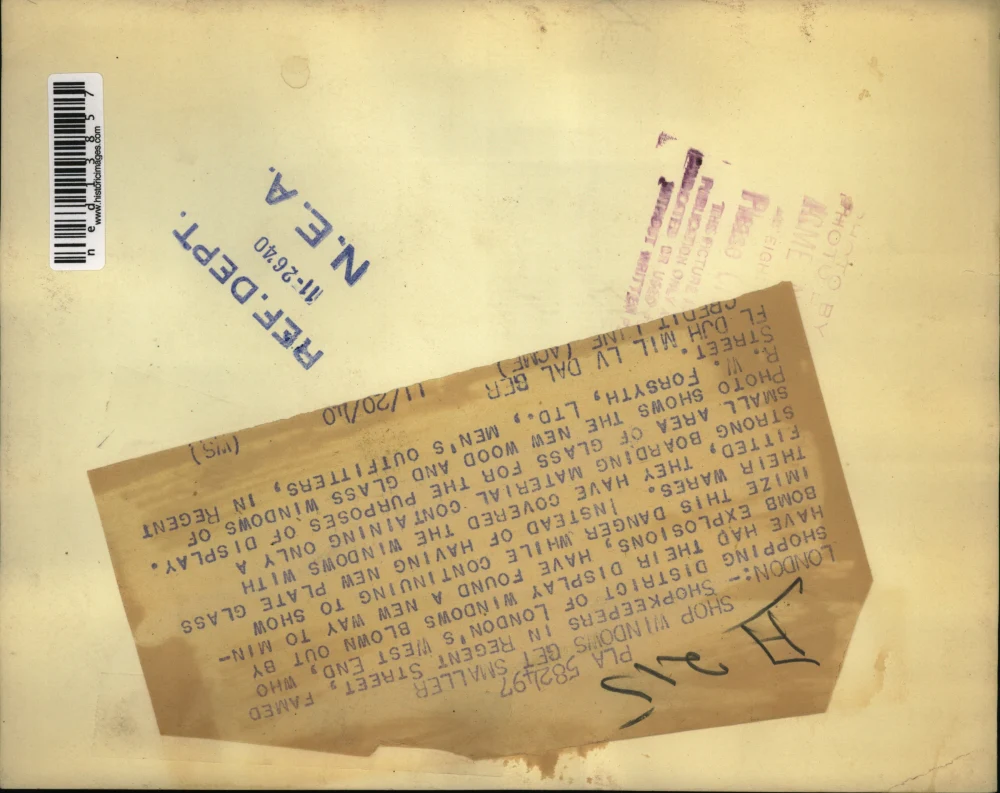 PLA 582497
SHOP WINDOWS GET SMALLER
LONDON:-- SHOPKEEPERS IN REGENT STREET, FAMED
SHOPPING DISTRICT OF LONDON'S WEST END, WHO
HAVE HAD THEIR DISPLAY WINDOWS BLOWN OUT BY
BOMB EXPLOSIONS, HAVE FOUND A NEW WAY TO MIN-
IMIZE THIS DANGER, WHILE CONTINUING TO SHOW
THEIR WARES. INSTEAD OF HAVING NEW PLATE GLASS
FITTED, THEY HAVE COVERED THE WINDOWS WITH
STRONG BOARDING MATERIAL CONTAINING ONLY A
SMALL AREA OF GLASS FOR THE PURPOSES OF DISPLAY.
PHOTO SHOWS THE NEW WOOD AND GLASS WINDOWS OF
R. W. FORSYTH, LTD., MEN'S OUTFITTERS, IN REGENT
STREET.
FL DJH MIL LV DAL GER 11/20/40 (WS)
CREDIT LINE (ACME)
REF. DEPT.
11-26 40
N. E. A.
PHOTO BY
ACME
THIS PICTURE
PUBLICATION ONLY
OR USED
WITHOUT WRITTEN
ned13857
www.historicimages.com